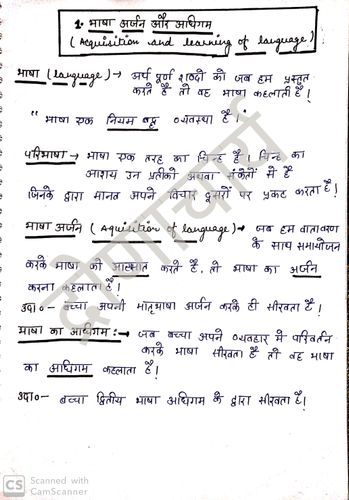 1. भाषा अर्जन और अधिगम
( Acquisition and learning of language )
भाषा (language) → अर्थ पूर्ण शब्दों को जब हम प्रस्तुत
करते है तो वह भाषा कहलाती है।
" भाषा एक नियम बद्ध व्यवस्था है।"
परिभाषा → भाषा एक तरह का चिन्ह है। चिन्ह का
आशय उन प्रतीकों अथवा संकेतों में है
जिनके द्वारा मानव अपने विचार दूसरों पर प्रकट करता है!
भाषा अर्जन ( Aquisition of language) → जब हम वातावरण
के साथ समायोजन
करके भाषा को आत्मसात करते है, तो भाषा का अर्जन
करना कहलाता है!
उदा०- बच्चा अपनी मातृभाषा अर्जन करके ही सीखता है!
भाषा का अधिगम :→ जब बच्चा अपने व्यवहार में परिवर्तन
करके भाषा सीखता है तो वह भाषा
का अधिगम कहलाता है!
उदा०- बच्चा द्वितीय भाषा अधिगम के द्वारा सीखता है!
द्रोणाचार्य
CS Scanned with
CamScanner